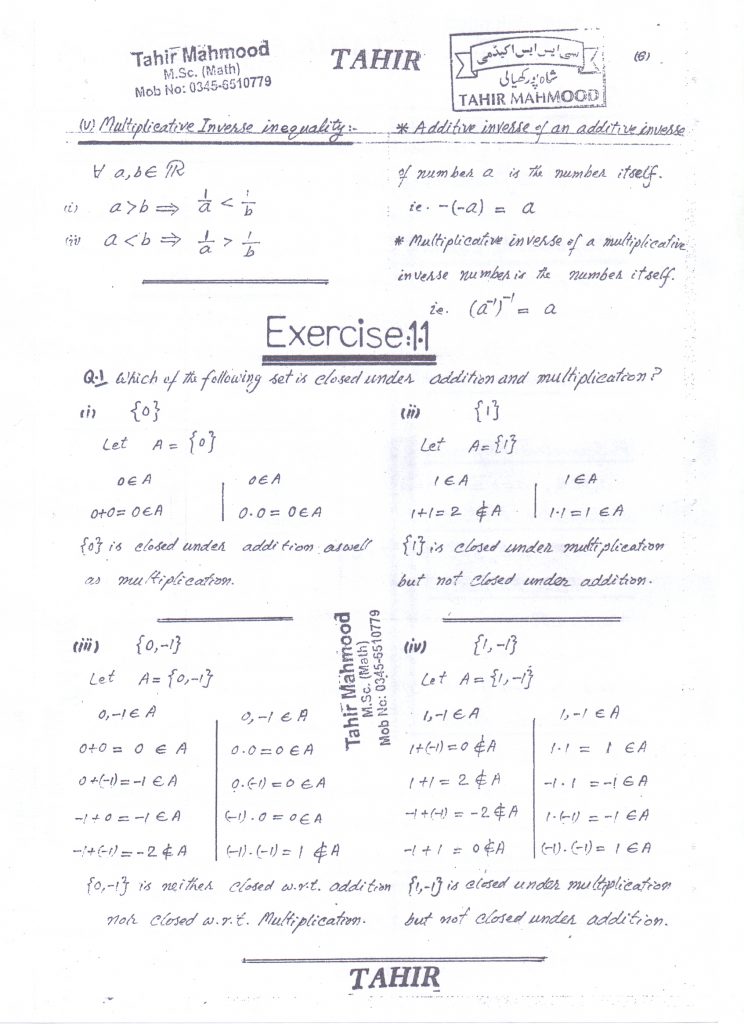 Tahir Mahmood
M.Sc. (Math)
Mob No: 0345-6510779
TAHIR
سی ایس ایس اکیڈمی
شاہ پور کھیالی
TAHIR MAHMOOD
(6)
(V) Multiplicative Inverse inequality:-
∀ a,b∈ ℝ
(i) a>b ⇒ 1/a < 1/b
(ii) a<b ⇒ 1/a > 1/b
* Additive inverse of an additive inverse
of number a is the number itself.
ie. -(-a) = a
* Multiplicative inverse of a multiplicative
inverse number is the number itself.
ie. (a⁻¹)⁻¹ = a
Exercise:1.1
Q.1 Which of the following set is closed under addition and multiplication?
(i) {0}
Let A = {0}
0∈A 0∈A
0+0= 0∈A 0.0 = 0∈A
{0} is closed under addition aswell
as multiplication.
(ii) {1}
Let A={1}
1∈A 1∈A
1+1=2 ∉A 1.1=1 ∈A
{1} is closed under multiplication
but not closed under addition.
Tahir Mahmood
M.Sc. (Math)
Mob No: 0345-6510779
(iii) {0,-1}
Let A={0,-1}
0,-1∈A 0,-1∈A
0+0 = 0 ∈ A 0.0=0∈A
0+(-1)=-1∈A 0.(-1)=0∈A
-1+0=-1∈A (-1).0=0∈A
-1+(-1)=-2∉A (-1).(-1)=1∉A
{0,-1} is neither closed w.r.t. addition
nor closed w.r.t. Multiplication.
(iv) {1,-1}
Let A={1,-1}
1,-1∈A 1,-1∈A
1+(-1)=0∉A 1.1 = 1 ∈A
1+1=2∉A -1.1=-1∈A
-1+(-1)=-2∉A 1.(-1)=-1∈A
-1+1=0∉A (-1).(-1)=1∈A
{1,-1} is closed under multiplication
but not closed under addition.
TAHIR